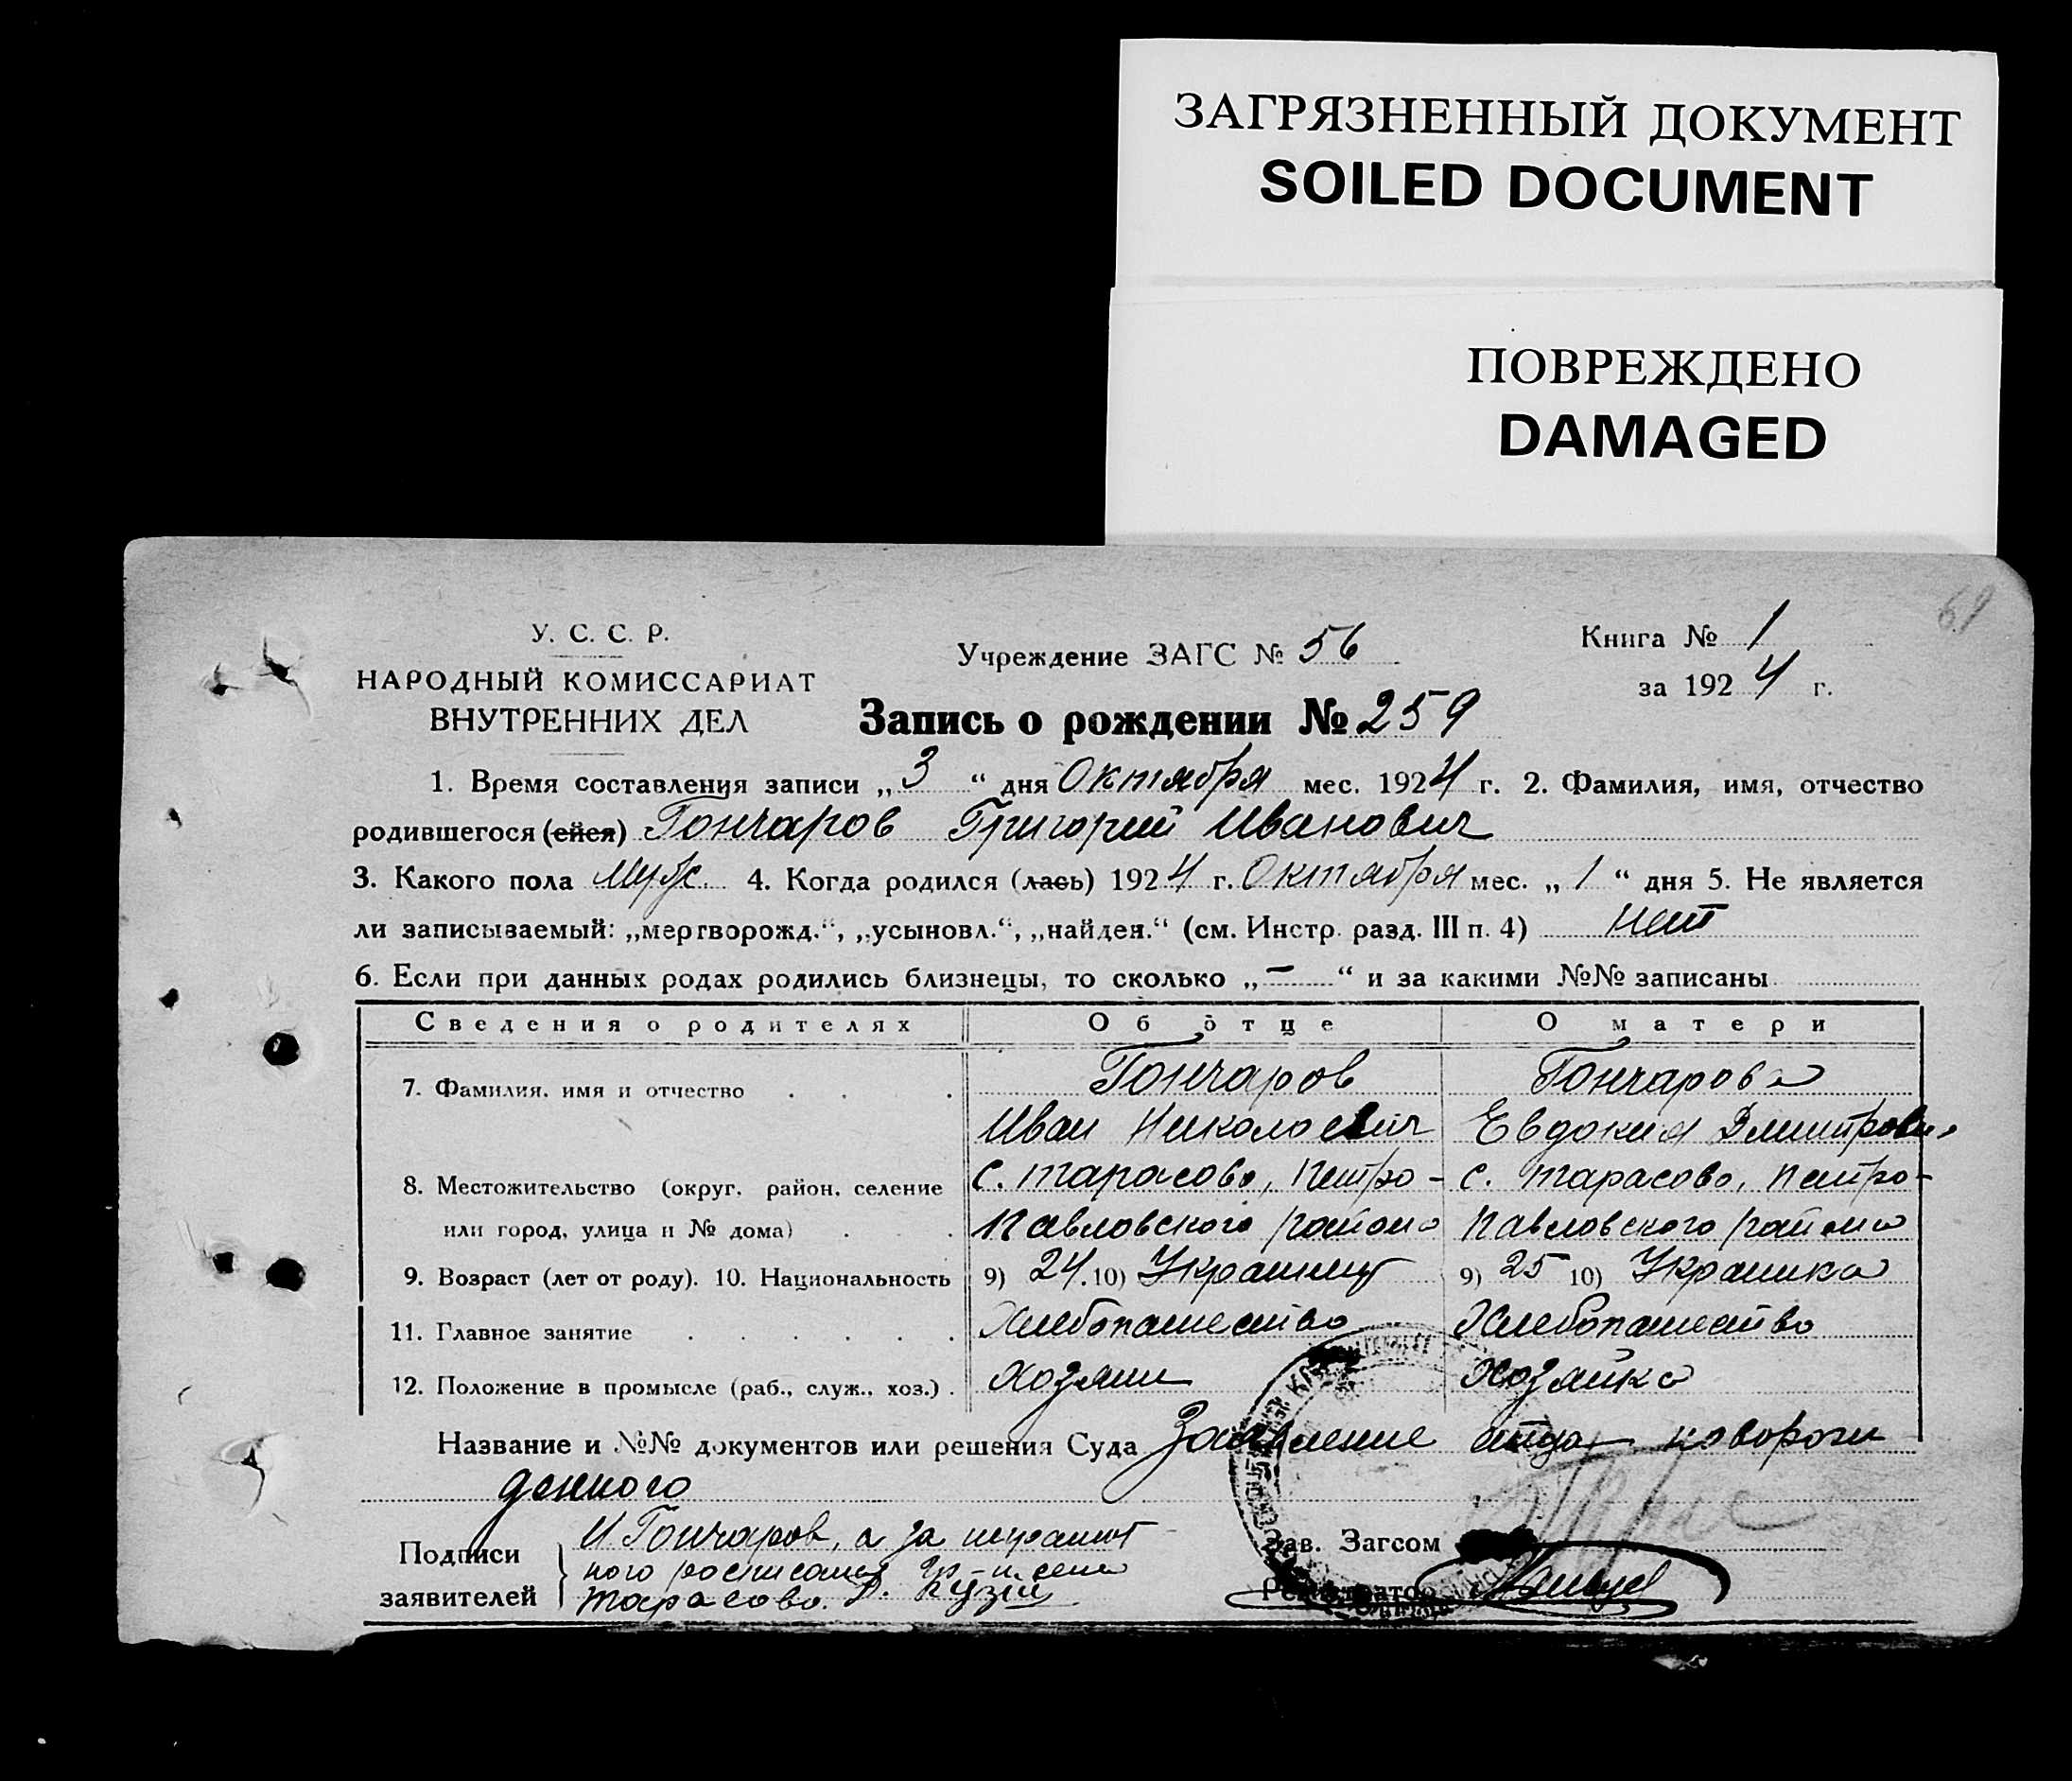 ЗАГРЯЗНЕННЫЙ ДОКУМЕНТ
SOILED DOCUMENT
ПОВРЕЖДЕНО
DAMAGED
69
У. С. С. Р.
НАРОДНЫЙ КОМИССАРИАТ
ВНУТРЕННИХ ДЕЛ
Учреждение ЗАГС № 56
Книга № 1
за 1924 г.
Запись о рождении № 259
1. Время составления записи „3“ дня Октября мес. 1924 г. 2. Фамилия, имя, отчество
родившегося (ейся) Гончаров Григорий Иванович
3. Какого пола Муж. 4. Когда родился (лась) 1924 г. Октября мес. „1“ дня 5. Не является
ли записываемый: „мертворожд.“, „усыновл.“, „найден.“ (см. Инстр. разд. III п. 4) Нет
6. Если при данных родах родились близнецы, то сколько „—“ и за какими №№ записаны
Сведения о родителях Об отце О матери
7. Фамилия, имя и отчество Гончаров Гончарова
Иван Николаевич Евдокия Дмитровн.
8. Местожительство (округ, район, селение с. Тарасово, Петро- с. Тарасово, Петро-
или город, улица и № дома) Павловского района Павловского района
9. Возраст (лет от роду). 10. Национальность 9) 24. 10) Украинец 9) 25 10) Украинка
11. Главное занятие Хлебопашество Хлебопашество
12. Положение в промысле (раб., служ., хоз.) Хозяин Хозяйка
Название и №№ документов или решения Суда Заявление отца новорож
денного
Подписи заявителей И Гончаров, а за неграмот
ного росписался гр-н села
Тарасово. Кузій
Зав. Загсом
Регистратор